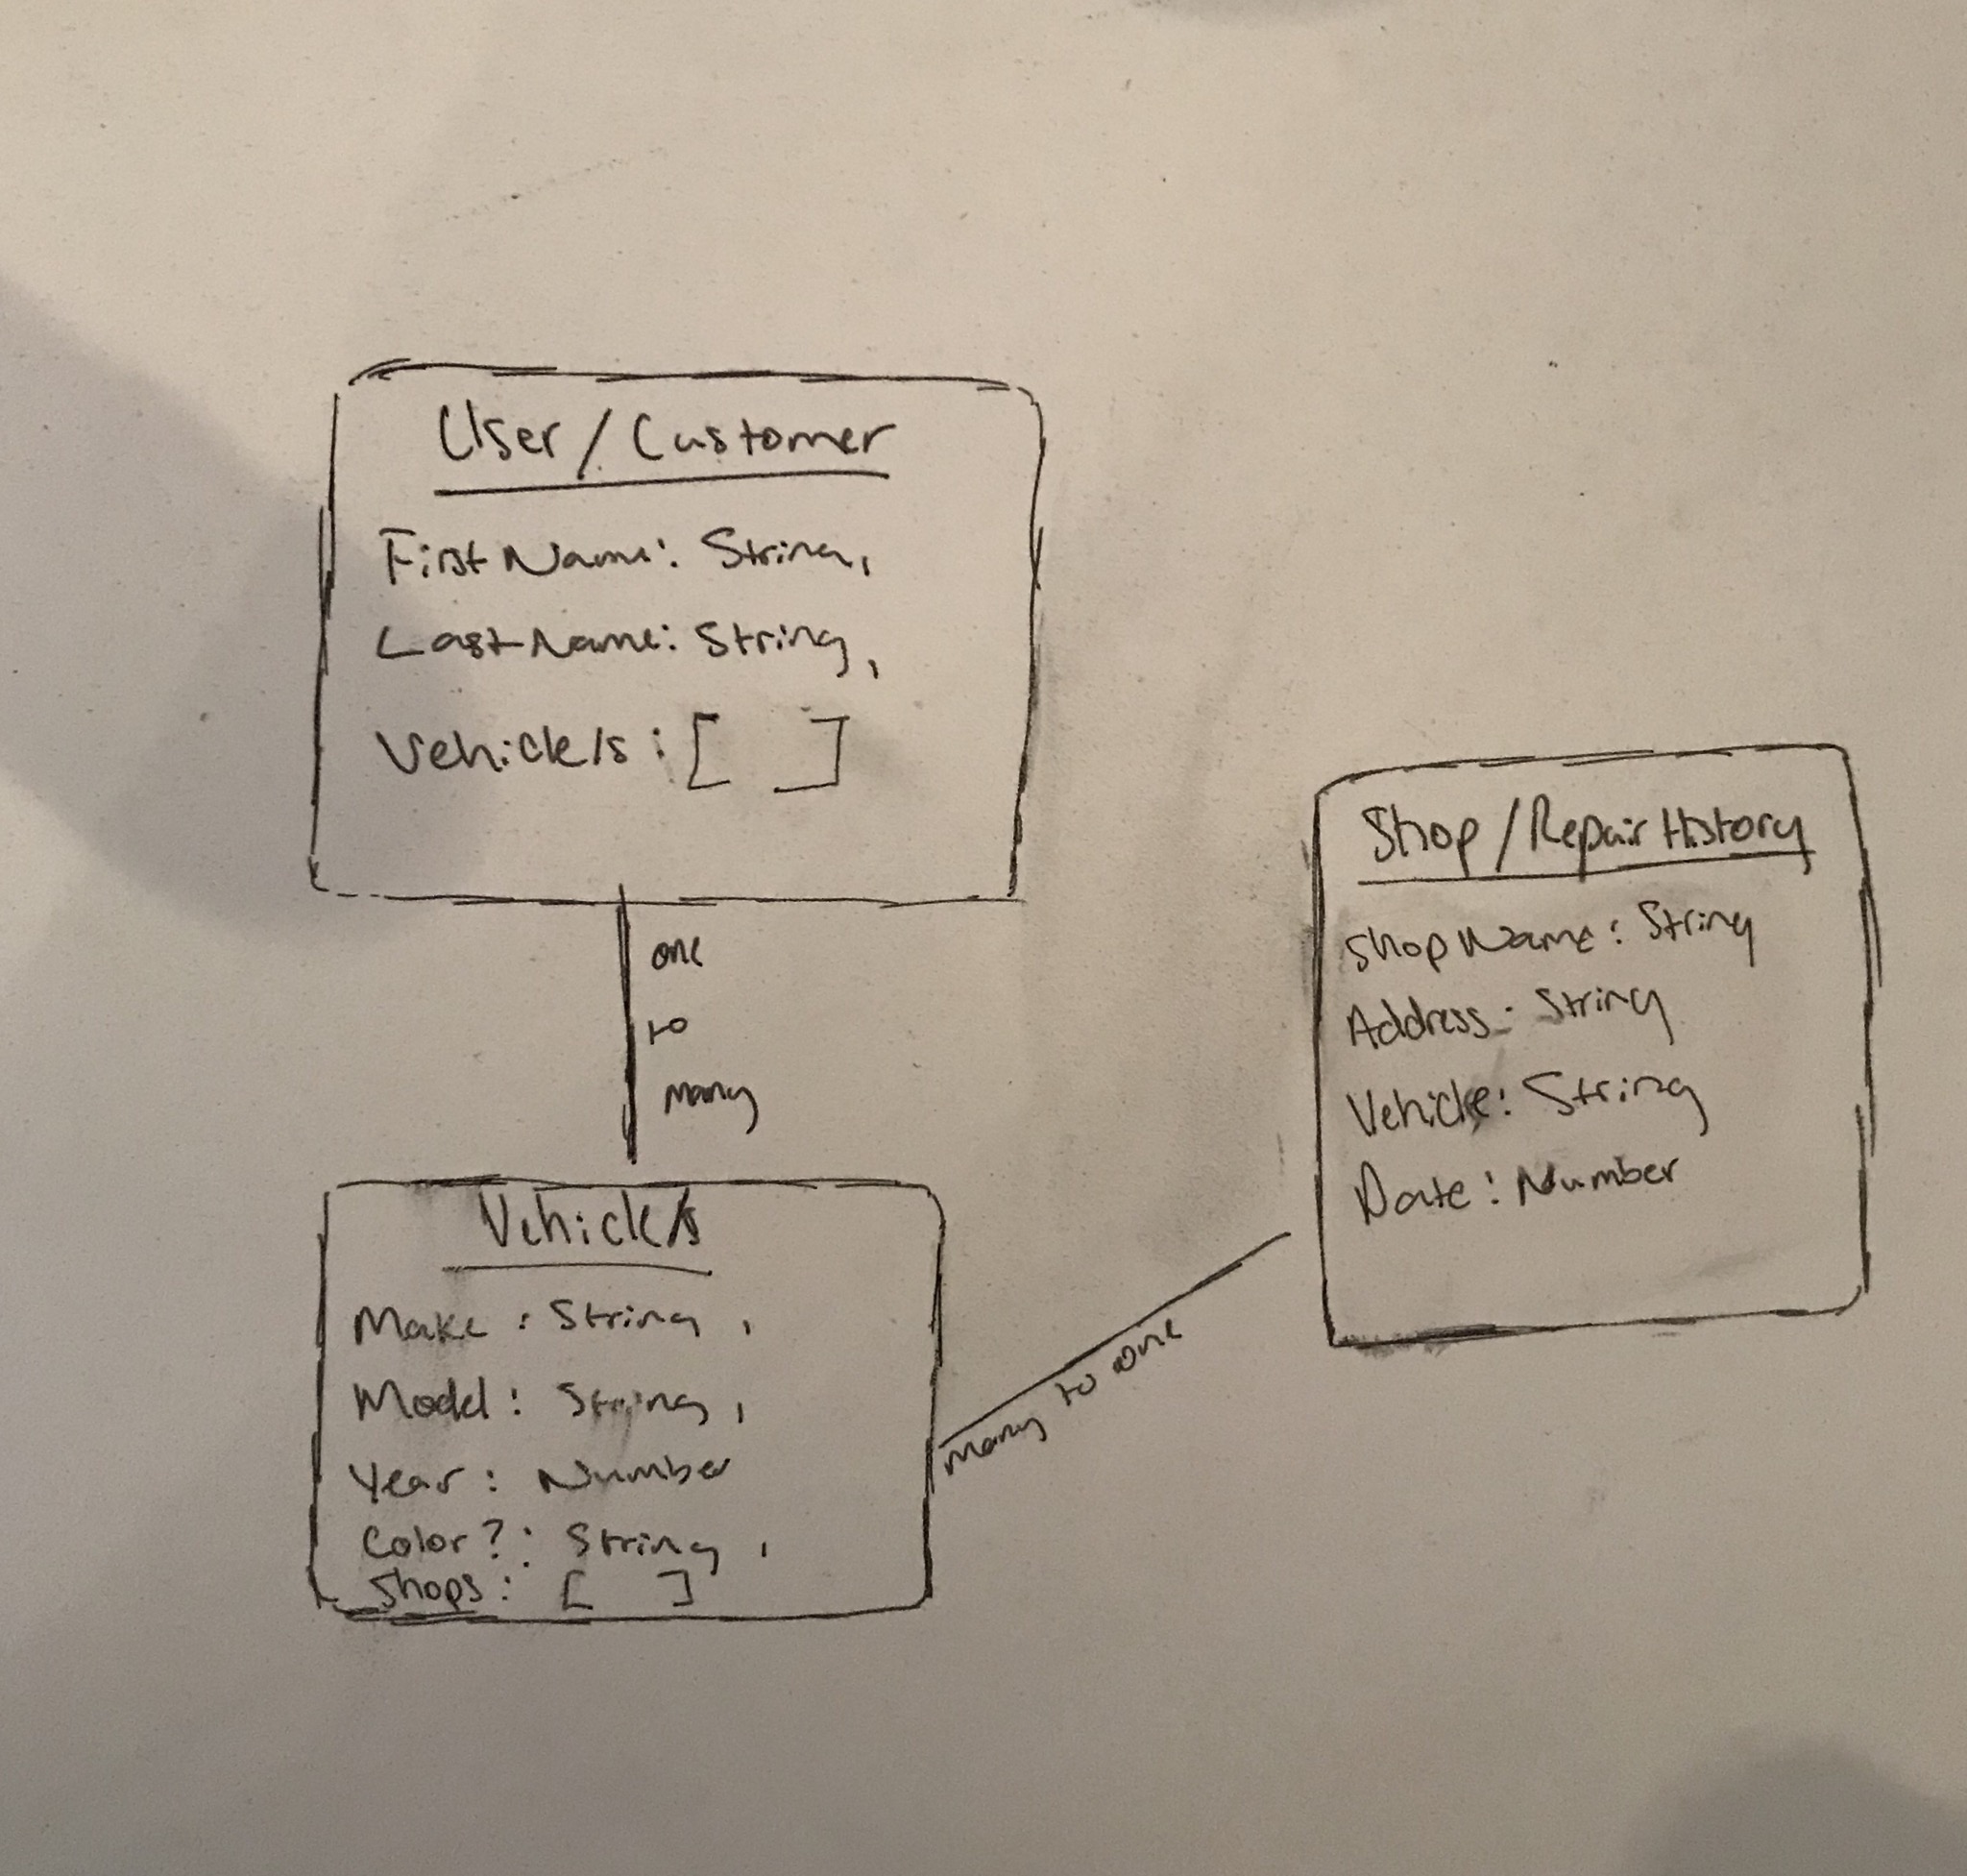 User / Customer
FirstName: String,
LastName: String,
Vehicle/s: [ ]
one
to
many
Vehicle/s
Make: String,
Model: String,
Year: Number
Color?: String,
Shops: [ ]
many to one
Shop / Repair History
ShopName: String
Address: String
Vehicle: String
Date: Number